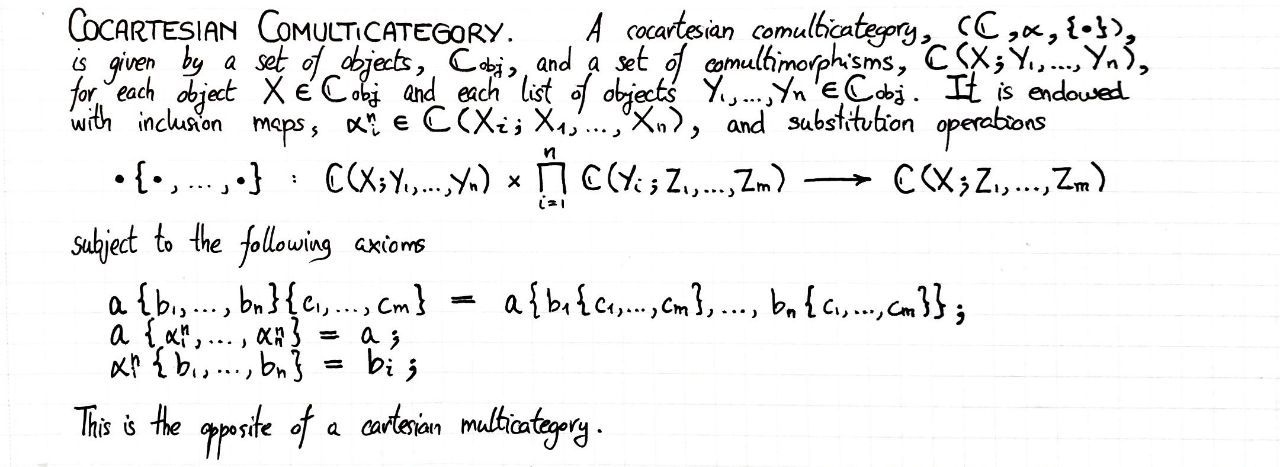 COCARTESIAN COMULTICATEGORY. A cocartesian comulticategory, (ℂ, ∝, {•}),
is given by a set of objects, ℂobj, and a set of comultimorphisms, ℂ(X; Y₁, ..., Yn),
for each object X ∈ ℂobj and each list of objects Y₁, ..., Yn ∈ ℂobj. It is endowed
with inclusion maps, ∝ᵢⁿ ∈ ℂ(Xᵢ; X₁, ..., Xn), and substitution operations
•{•, ..., •} : ℂ(X; Y₁, ..., Yn) × ∏ᵢ₌₁ⁿ ℂ(Yᵢ; Z₁, ..., Zm) ⟶ ℂ(X; Z₁, ..., Zm)
subject to the following axioms
a {b₁, ..., bn}{c₁, ..., cm} = a{b₁{c₁, ..., cm}, ..., bn{c₁, ..., cm}};
a {∝₁ⁿ, ..., ∝ₙⁿ} = a;
∝ᵢⁿ {b₁, ..., bn} = bᵢ;
This is the opposite of a cartesian multicategory.